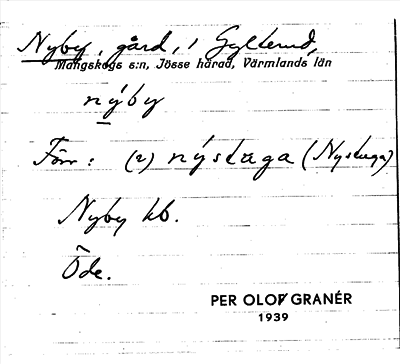 Nyby, gård, i Gylterud,
Mangskogs s:n, Jösse härad, Värmlands län
nýby
Förr: (2) nýstuga (Nystuga)
Nyby hb.
Öde.
PER OLOF GRANÉR
1939